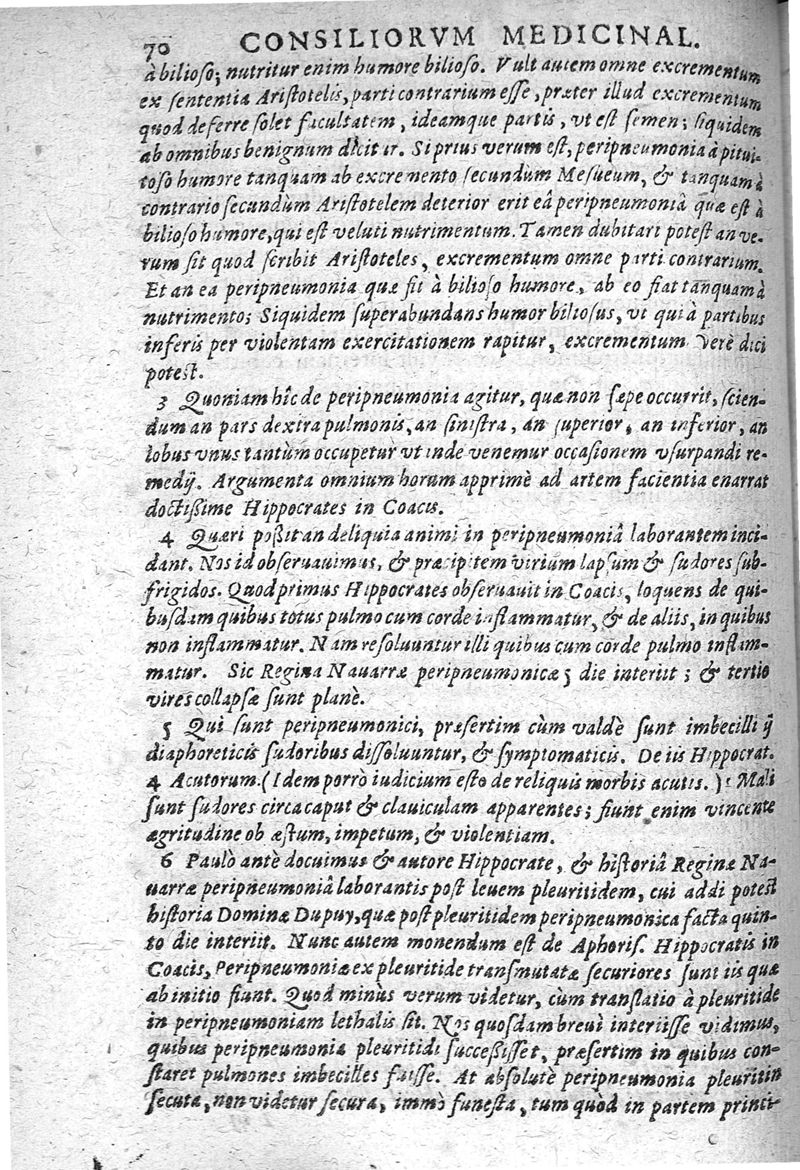 70 CONSILIORVM MEDICINAL.
à bilioso; nutritur enim humore bilioso. Vult autem omne excrementum
ex sententia Aristotelis, parti contrarium esse, præter illud excrementum
quod deferre solet facultatem, ideamque partis, vt est semen; siquidem
ab omnibus benignum dicitur. Si prius verum est, peripneumonia à pitui-
toso humore tanquam ab excremento secundùm Mesueum, & tanquam à
contrario secundùm Aristotelem deterior erit eâ peripneumoniâ quæ est à
bilioso humore, qui est veluti nutrimentum. Tamen dubitari potest an ve-
rum sit quod scribit Aristoteles, excrementum omne parti contrarium.
Et an ea peripneumonia quæ fit à bilioso humore, ab eo fiat tanquam à
nutrimento; Siquidem superabundans humor biliosus, vt qui à partibus
inferis per violentam exercitationem rapitur, excrementum verè dici
potest.
3 Quoniam hîc de peripneumonia agitur, quæ non sæpe occurrit, scien-
dum an pars dextra pulmonis, an sinistra, an superior, an inferior, an
lobus vnus tantùm occupetur vt inde venemur occasionem vsurpandi re-
medij. Argumenta omnium horum apprimè ad artem facientia enarrat
doctißime Hippocrates in Coacis.
4 Quæri poßit an deliquia animi in peripneumoniâ laborantem inci-
dant. Nos id obseruauimus, & præcipitem virium lapsum & sudores sub-
frigidos. Quod primus Hippocrates obseruauit in Coacis, loquens de qui-
busdam quibus totus pulmo cum corde inflammatur, & de aliis, in quibus
non inflammatur. Nam resoluuntur illi quibus cum corde pulmo inflam-
matur. Sic Regina Nauarræ peripneumonica 5 die interiit; & tertio
vires collapsæ sunt planè.
5 Qui sunt peripneumonici, præsertim cùm valdè sunt imbecilli ij
diaphoreticis sudoribus dissoluuntur, & symptomaticis. De iis Hippocrat.
4 Acutorum. (Idem porrò iudicium esto de reliquis morbis acutis.) Mali
sunt sudores circa caput & clauiculam apparentes; fiunt enim vincente
ægritudine ob æstum, impetum, & violentiam.
6 Paulò antè docuimus & autore Hippocrate, & historiâ Reginæ Na-
uarræ peripneumoniâ laborantis post leuem pleuritidem, cui addi potest
historia Dominæ Dupuy, quæ post pleuritidem peripneumonica facta quin-
to die interiit. Nunc autem monendum est de Aphoris. Hippocratis in
Coacis, Peripneumoniæ ex pleuritide transmutatæ securiores sunt iis quæ
ab initio fiunt. Quod minùs verum videtur, cùm translatio à pleuritide
in peripneumoniam lethalis sit. Nos quosdam breui interiisse vidimus,
quibus peripneumonia pleuritidi successisset, præsertim in quibus con-
staret pulmones imbecilles fuisse. At absolutè peripneumonia pleuritin
secuta, non videtur secura, immò funesta, tum quòd in partem princi-